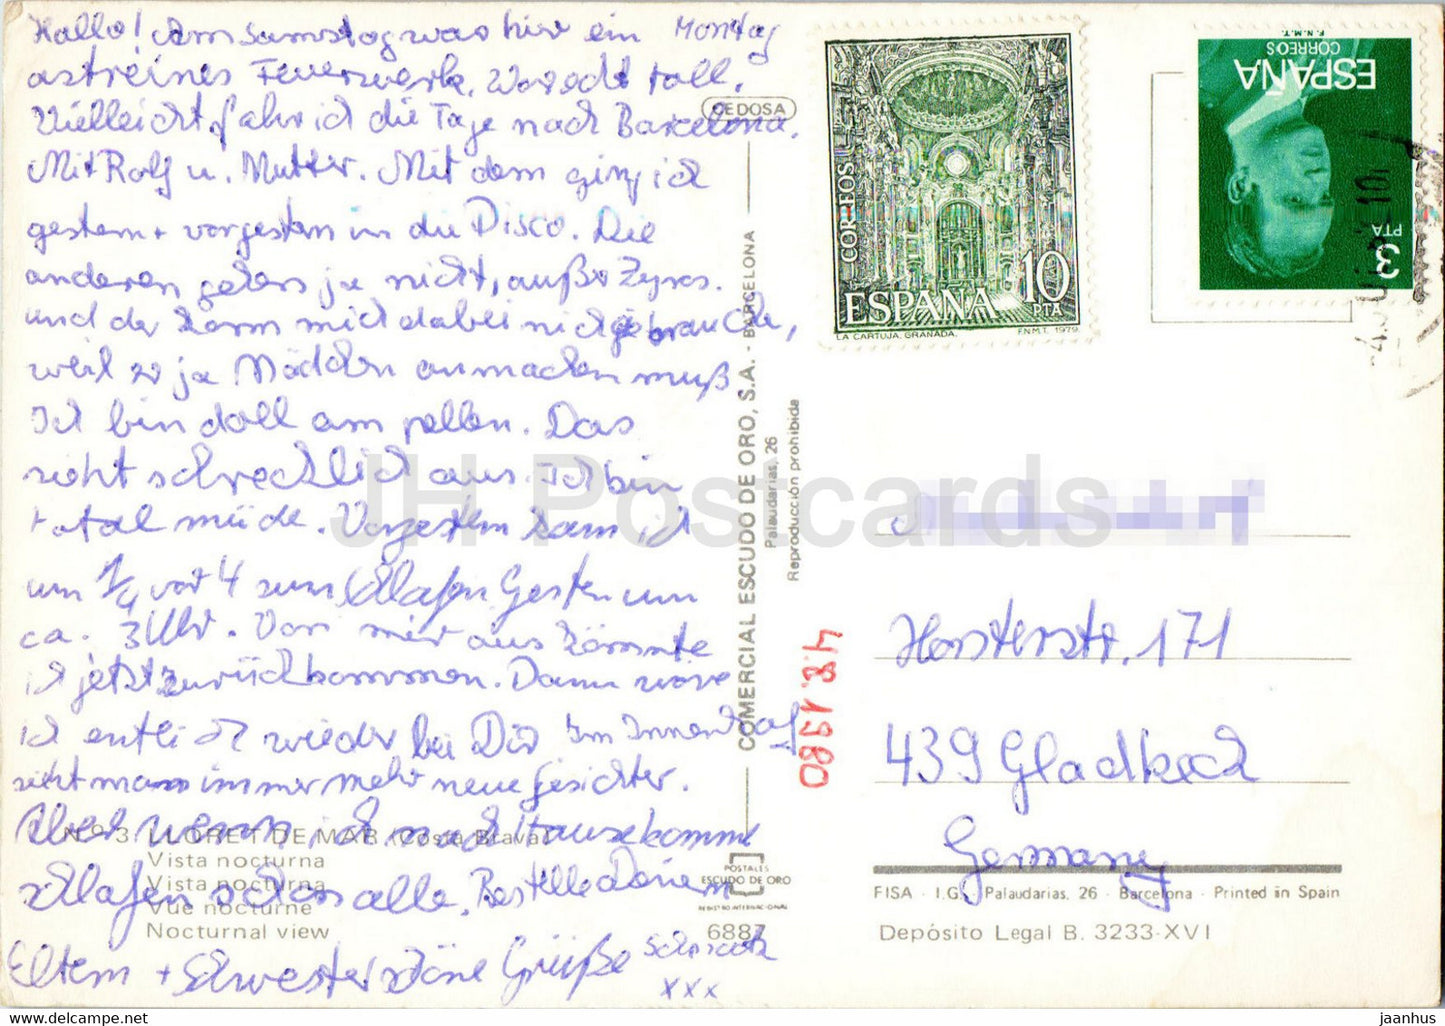 Hallo! Am Samstag war hier ein Montag
astreines Feuerwerk. War echt toll.
Vielleicht fahr ich die Tage nach Barcelona.
Mit Rolf u. Mutter. Mit dem ging ich
gestern + vorgestern in die Disco. Die
anderen gehen ja nicht, außer Zyros.
und der kann mich dabei nicht gebrauchen,
weil er ja Mädchen anmachen muß
Ich bin doll am pellen. Das
sieht schrecklich aus. Ich bin
total müde. Vorgestern kam ich
um 1/4 vor 4 zum Schlafen Gestern um
ca. 3 Uhr. Von mir aus könnte
ich jetzt zurückkommen. Dann wäre
ich entlich wieder bei Dir Im Innenhof
sieht man immer mehr neue Gesichter.
Aber wenn ich nach Hause komme
schlafen schon alle. Bestelle Deinen
Eltern + Schwester schöne Grüße
xxx
CEDOSA
COMERCIAL ESCUDO DE ORO, S.A. - BARCELONA
Palaudarias, 26
Reproducción prohibida
N.º 3 LLORET DE MAR (Costa Brava)
Vista nocturna
Vista nocturna
Vue nocturne
Nocturnal view
POSTALES
ESCUDO DE ORO
REGISTRO INTERNACIONAL
6887
CORREOS
ESPAÑA
10
PTA
LA CARTUJA. GRANADA
F.N.M.T. 1979
3
PTA
ESPAÑA
CORREOS
F.N.M.T.
4.8.1980
Horsterstr. 171
439 Gladbeck
Germany
FISA - I.G. Palaudarias, 26 - Barcelona - Printed in Spain
Depósito Legal B. 3233-XVI
JH Postcards
www.hippostcard.com
jaanhus